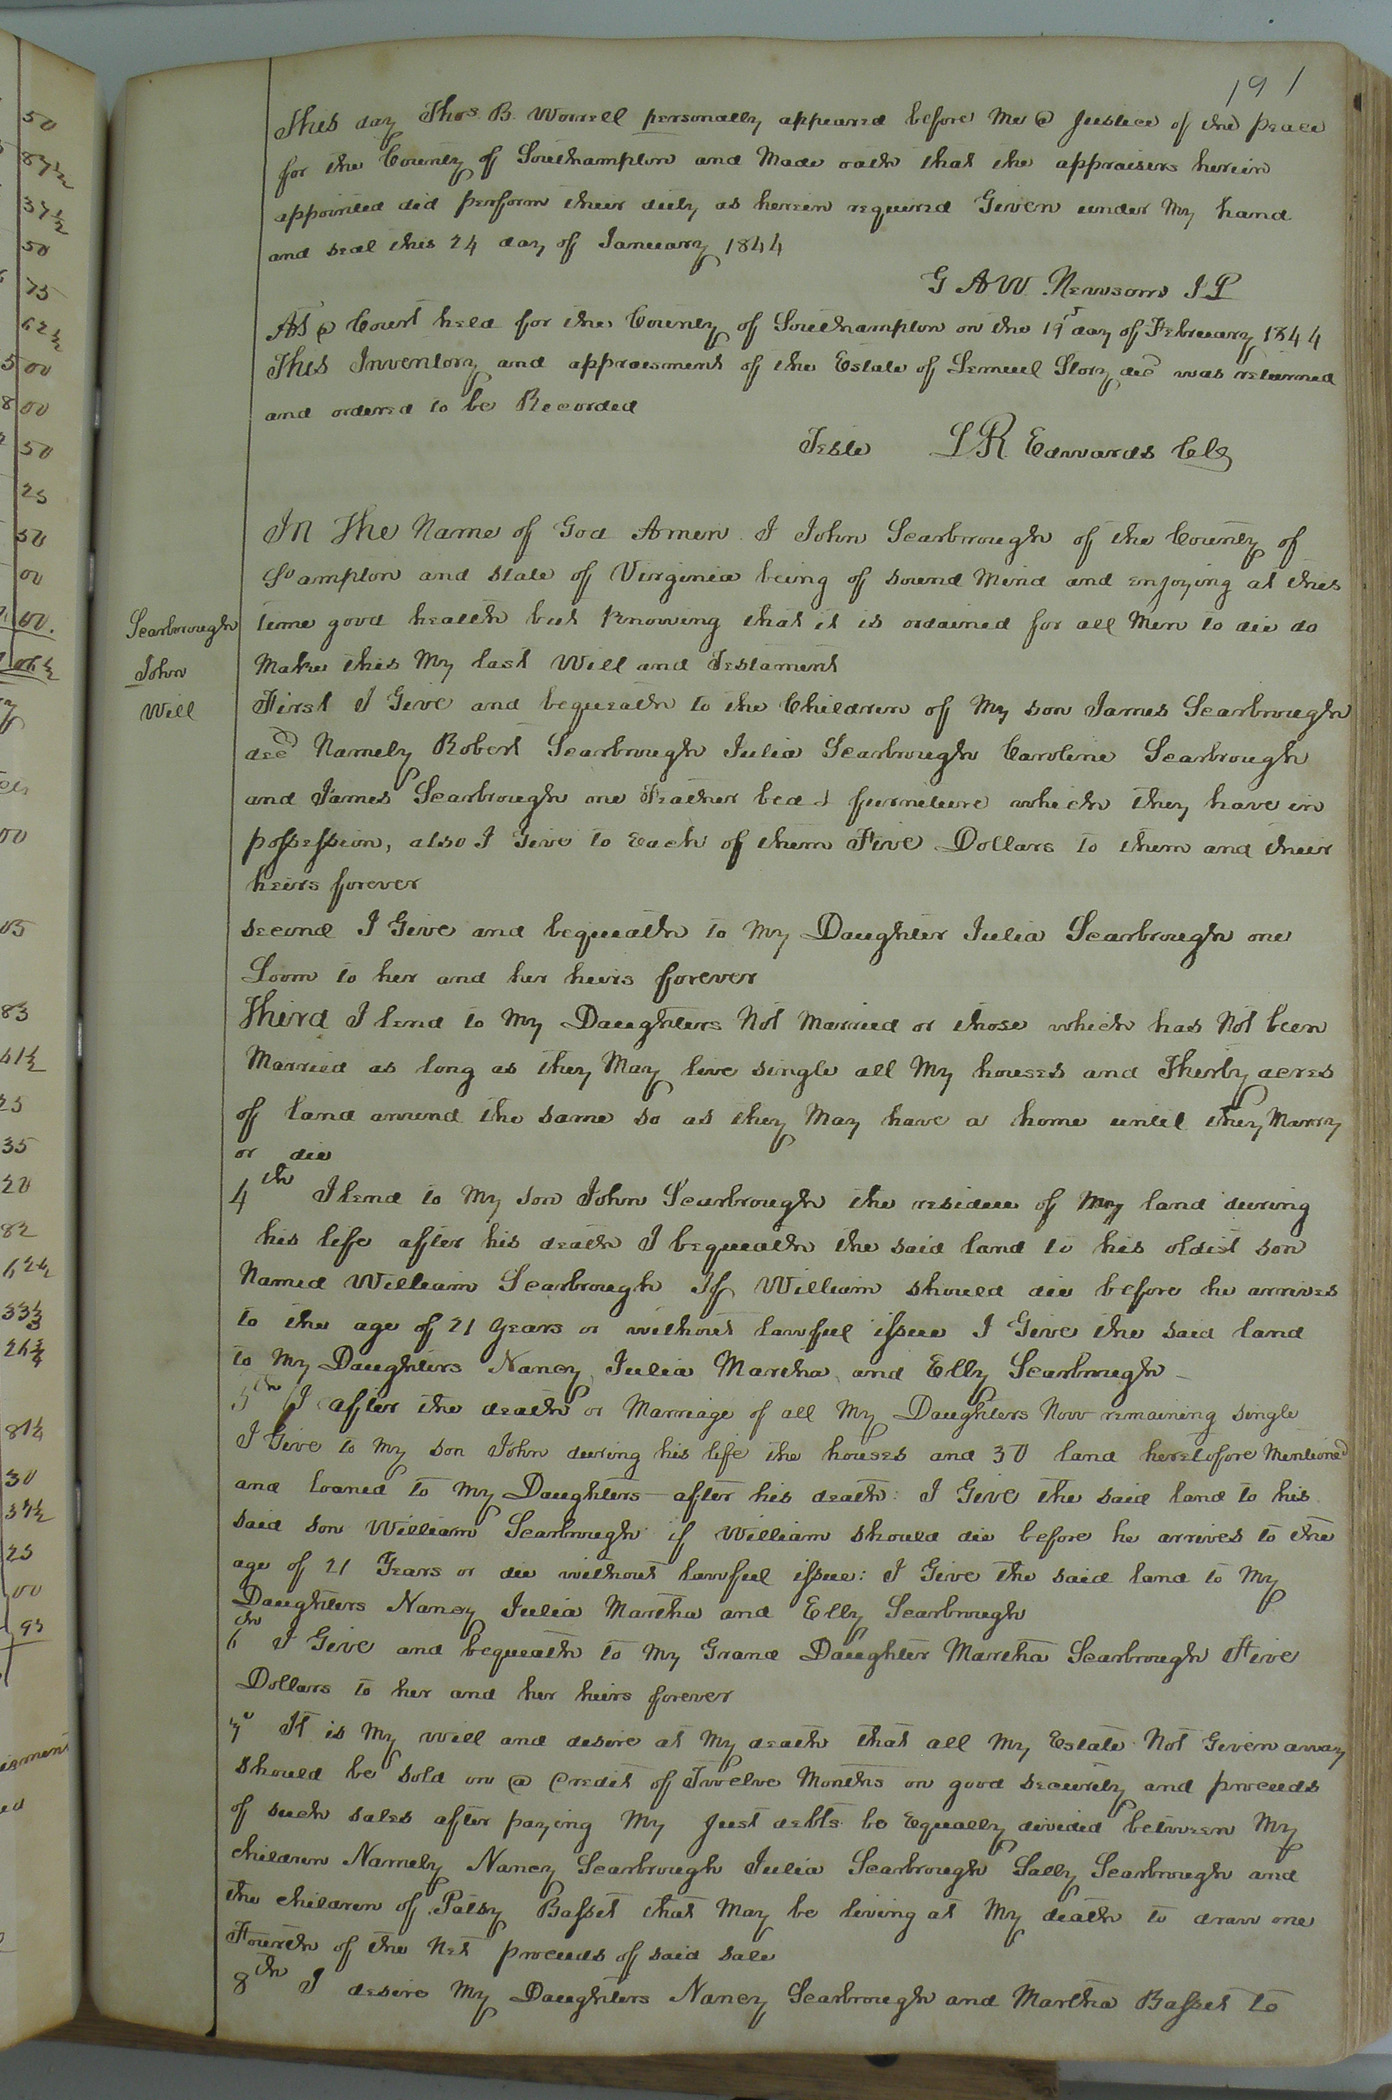 191
This day Thos. B. Worrell personally appeared before Me a Justice of the peace
for the County of Southampton and Made oath that the appraisers herein
appointed did perform their duty as herein required Given under My hand
and seal this 24 day of January 1844
G A W Newsom J P
At a Court held for the County of Southampton on the 19th day of February 1844
This Inventory and appraisment of the Estate of Lemuel Story decd was returned
and ordered to be Recorded
Teste L R Edwards Clk
In The Name of God Amen I John Scarbrough of the County of
So ampton and state of Virginia being of sound Mind and enjoying at this
time good health but Knowing that it is ordained for all Men to die do
Make this My last Will and Testament
Scarbrough
John
Will
First I Give and bequeath to the Children of My son James Scarbrough
decd Namely Robert Scarbrough Julia Scarbrough Caroline Scarbrough
and James Scarbrough one Feather bed & furniture which they have in
possession, also I Give to Each of them Five Dollars to them and their
heirs forever
second I Give and bequeath to My Daughter Julia Scarbrough one
Loom to her and her heirs forever
Third I lend to My Daughters Not Married or those which has Not been
Married as long as they May live single all My houses and Thirty acres
of land around the same so as they May have a home until they Marry
or die
4th I lend to My son John Scarbrough the residue of My land during
his life after his death I bequeath the said land to his oldist son
Named William Scarbrough If William should die before he arrives
to the age of 21 years or without lawful issue I Give the said land
to My Daughters Nancy, Julia Martha, and Elly Scarbrough
5th I after the death or Marriage of all My Daughters Now remaining single
I Give to My son John during his life the houses and 30 land heretofore Mentioned
and loaned to My Daughters after his death: I Give the said land to his
said son William Scarbrough if William should die before he arrives to the
age of 21 Years or die without lawful issue: I Give the said land to My
Daughters Nancy Julia Martha and Elly Scarbrough
6th I Give and bequeath to My Grand Daughter Martha Scarbrough Five
Dollars to her and her heirs forever
7th It is My will and desire at My death that all My Estate Not Given away
should be sold on a Credit of Twelve Months on good security and proceeds
of such sales after paying My Just debts be Equally divided between My
children Namely Nancy Scarbrough Julia Scarbrough Sally Scarbrough and
the children of Patsy Basset that May be living at My death to draw one
Fourth of the Net proceeds of said sale
8th I desire My Daughters Nancy Scarbrough and Martha Basset to